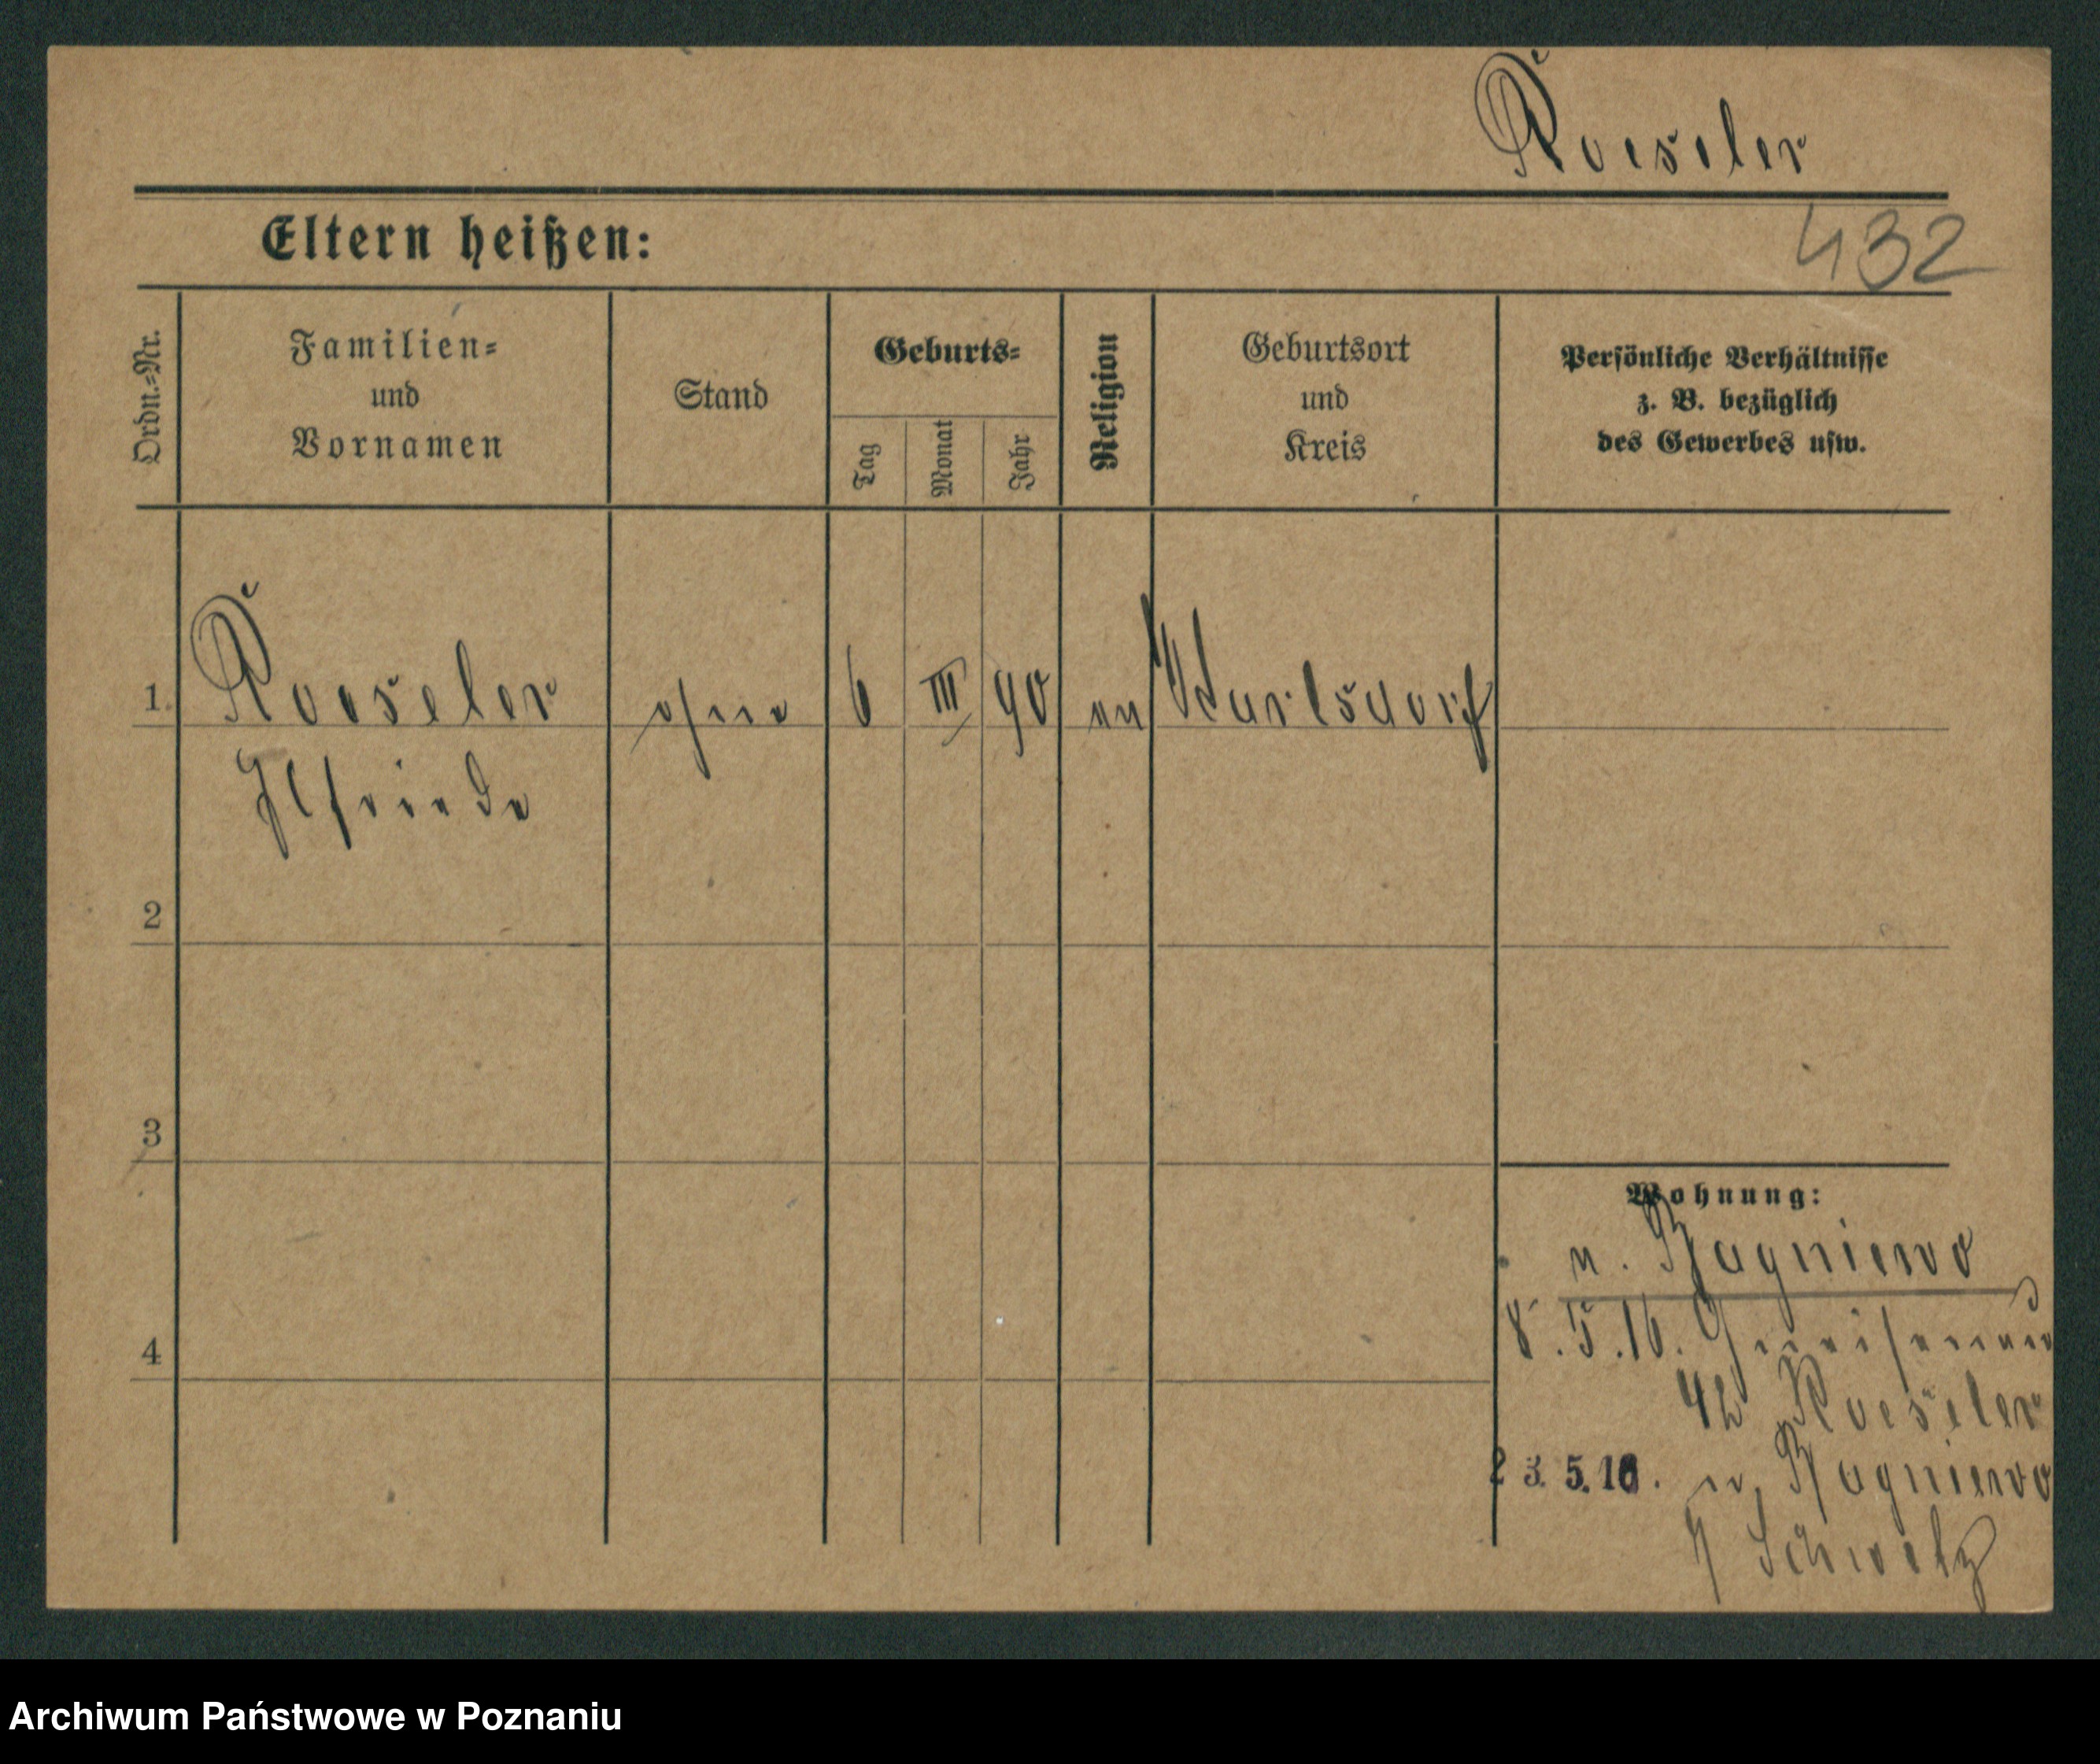 Roeseler
Eltern heißen:
432
Ordn.=Nr.
Familien=
und
Vornamen
Stand
Geburts=
Tag
Monat
Jahr
Religion
Geburtsort
und
Kreis
Persönliche Verhältnisse
z. B. bezüglich
des Gewerbes usw.
1. Roeseler ohne 6 III 90 ev
Elfriede
2
3
4
Wohnung:
n. Bagniewo
8.5.16. Gneisenau
42 Roeseler
23.5.16. n. Bagniewo
Schwetz
Archiwum Państwowe w Poznaniu